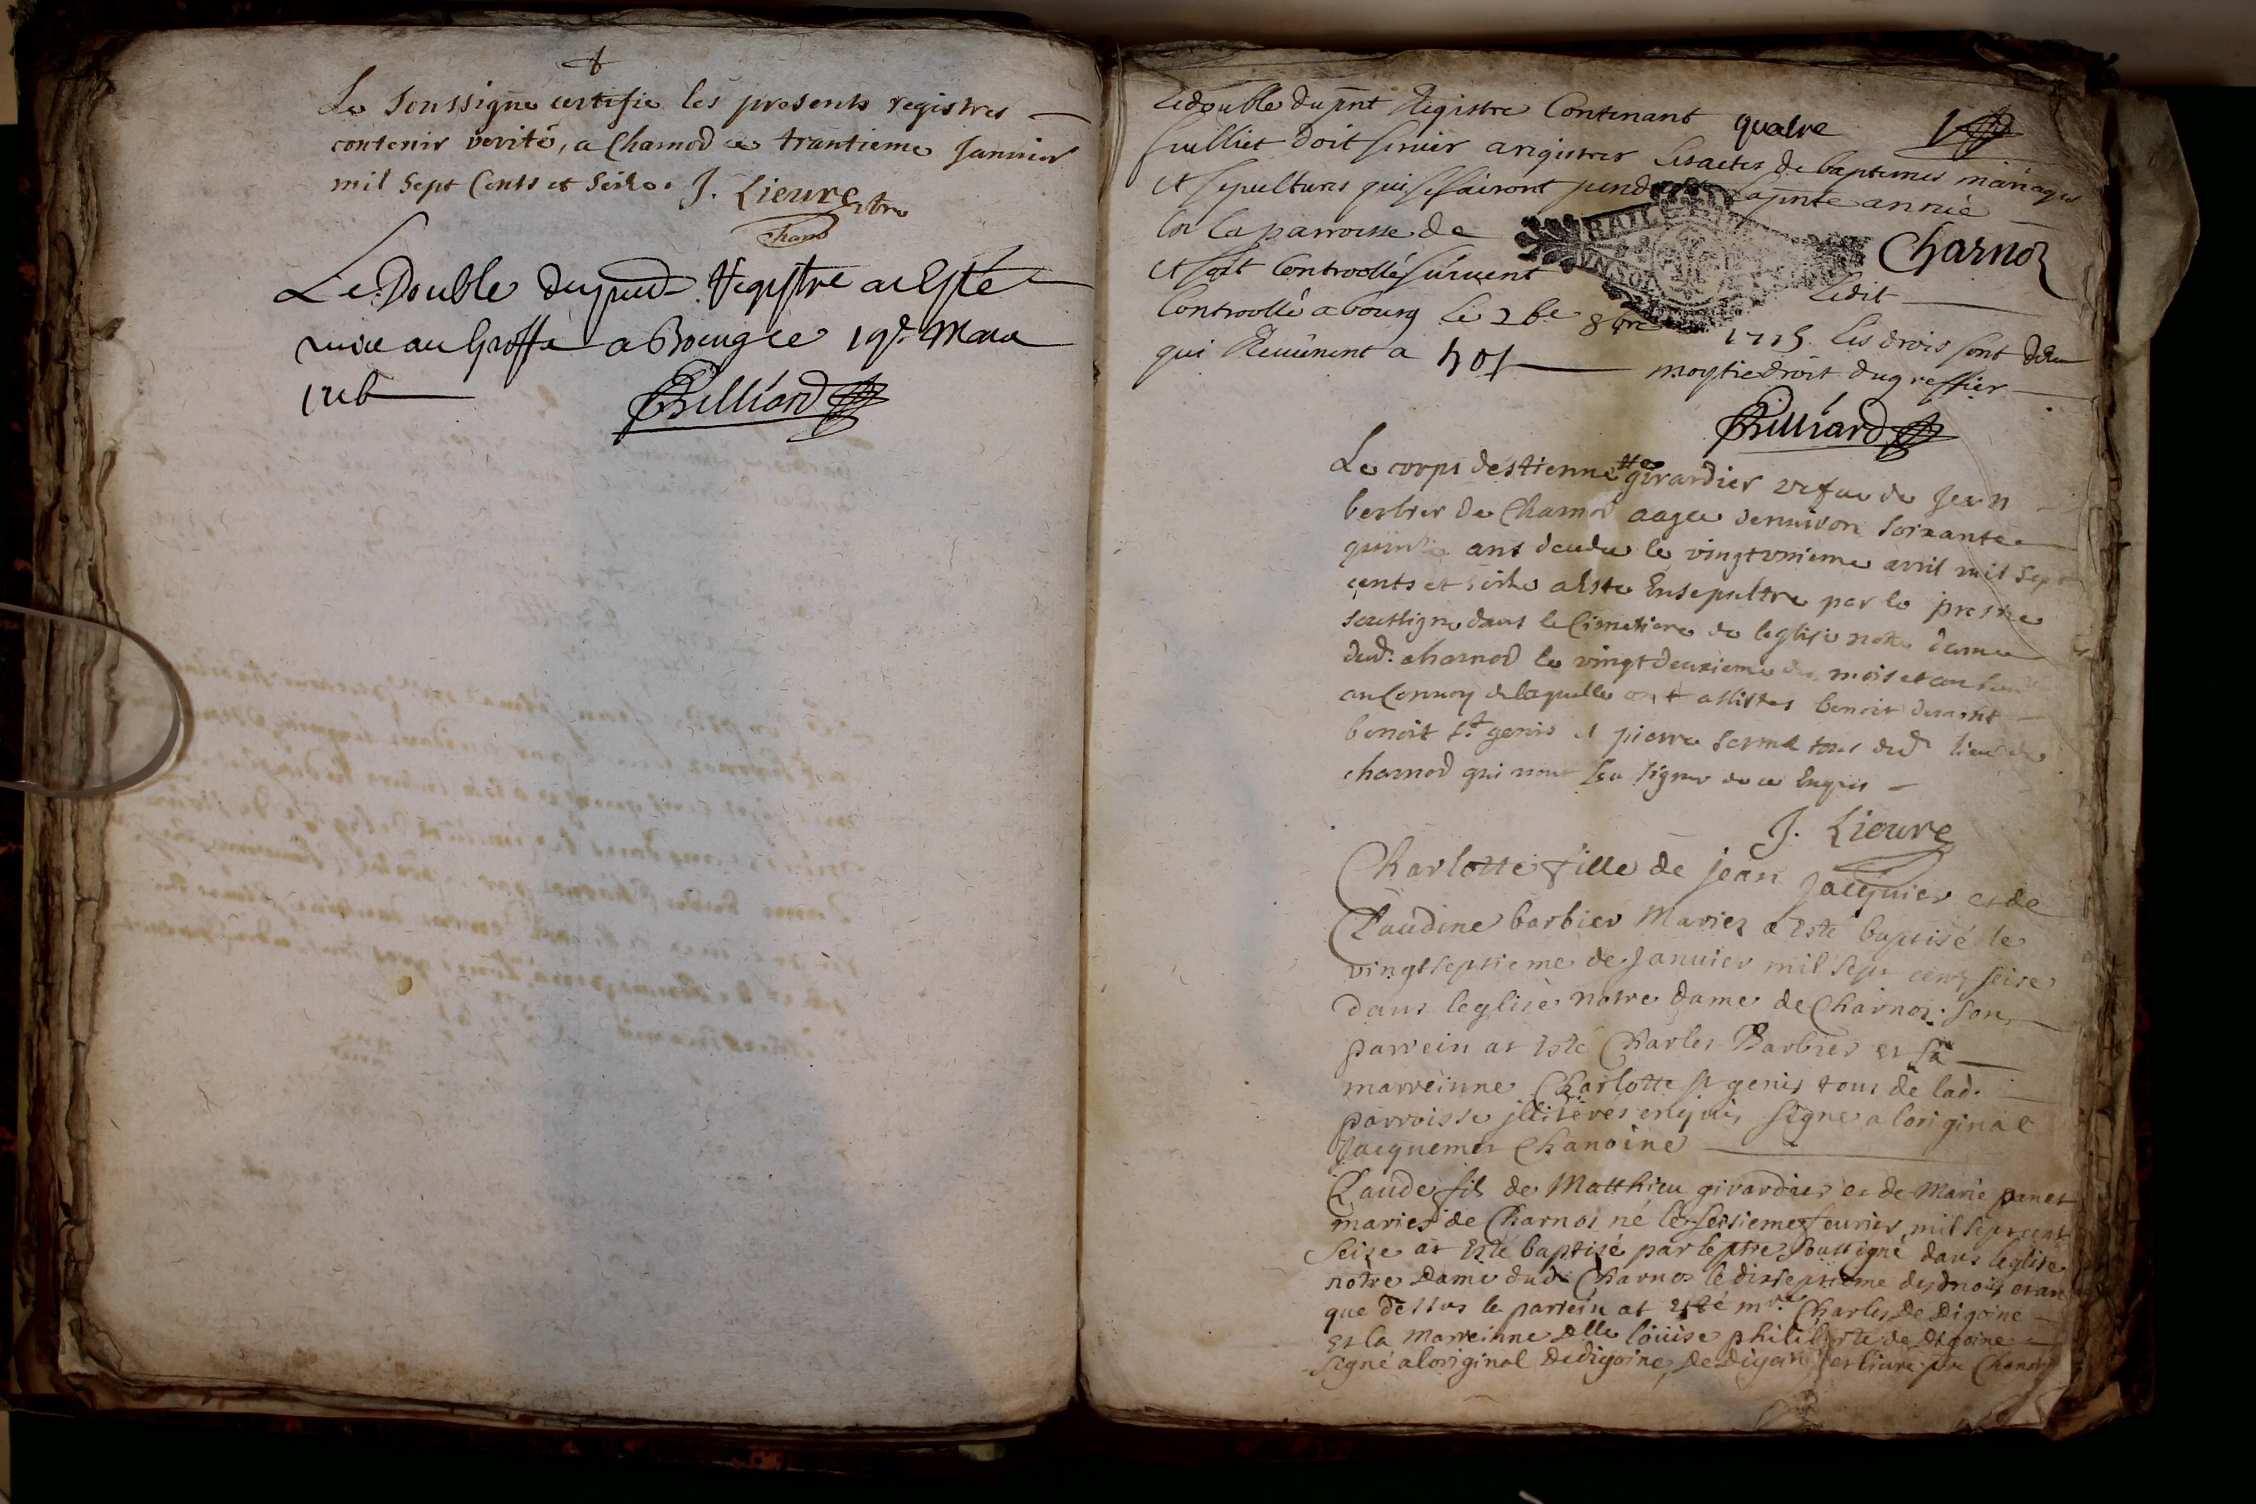 Le Soussigne certifie les presents registres
contenir verité, a Charnod ce trantieme Janvier
mil Sept Cents et seize. J. Lieure ptre
chan
Le Double du pnt Registre a esté
mis au Greffe a Bourg ce 19e Mars
1716
Billiard
Ledouble du pnt Registre Contenant quatre
fuelliet doit servir a registrer les actes de baptemes mariages
et sepultures qui se fairont pendant la pnte année
En la parroisse de Charnoz
et soit Controollé suivent Ledit
Controollé a bourg le 26e 8bre 1715. les drois sont
qui Revienent a moytie droit du greffier
Billiard
Le corps destiennette girardier vefue de Jean
berbier de Charnod aagee denuiron soixante
quinze ans decedee le vingtvnieme avril mil sept
cents et seize a esté Ensepultre par le prestre
soussigne dans le Cimetiere de leglise notre dame
dud. charnod le vingtdeuxieme du mois et an
au Convoy de laquelle ont assistes benoit
benoit St. genis et pierre tous dud. lieu de
charnod qui nont sceu signer de ce Enquis
J. Lieure
Charlotte fille de jean Jacquier et de
Claudine barbier Mariez a Esté baptisé le
vingtseptieme de Janvier mil sept cent seise
dans leglise notre dame de Charnoz. son
parrein at Esté Charles Barbier et sa
marreinne Charlotte st genis tous de lad.
parroisse jlliteres enquis signe a loriginal
Jacquemet Chanoine
Claude fils de Matthieu girardier et de Marie panet
mariez de Charnoz né le seisieme feurier mil sept cent
Seize at Esté baptisé par le ptre soussigné dans leglise
notre Dame dud. Charnoz le dixseptieme desd mois et an
que dessus le parrein at esté mre. Charles De Digoine
et la marreinne Delle loüise philiberte de Digoine
signé a loriginal Dedigoine, De digoine et lieure ptre Chanoi